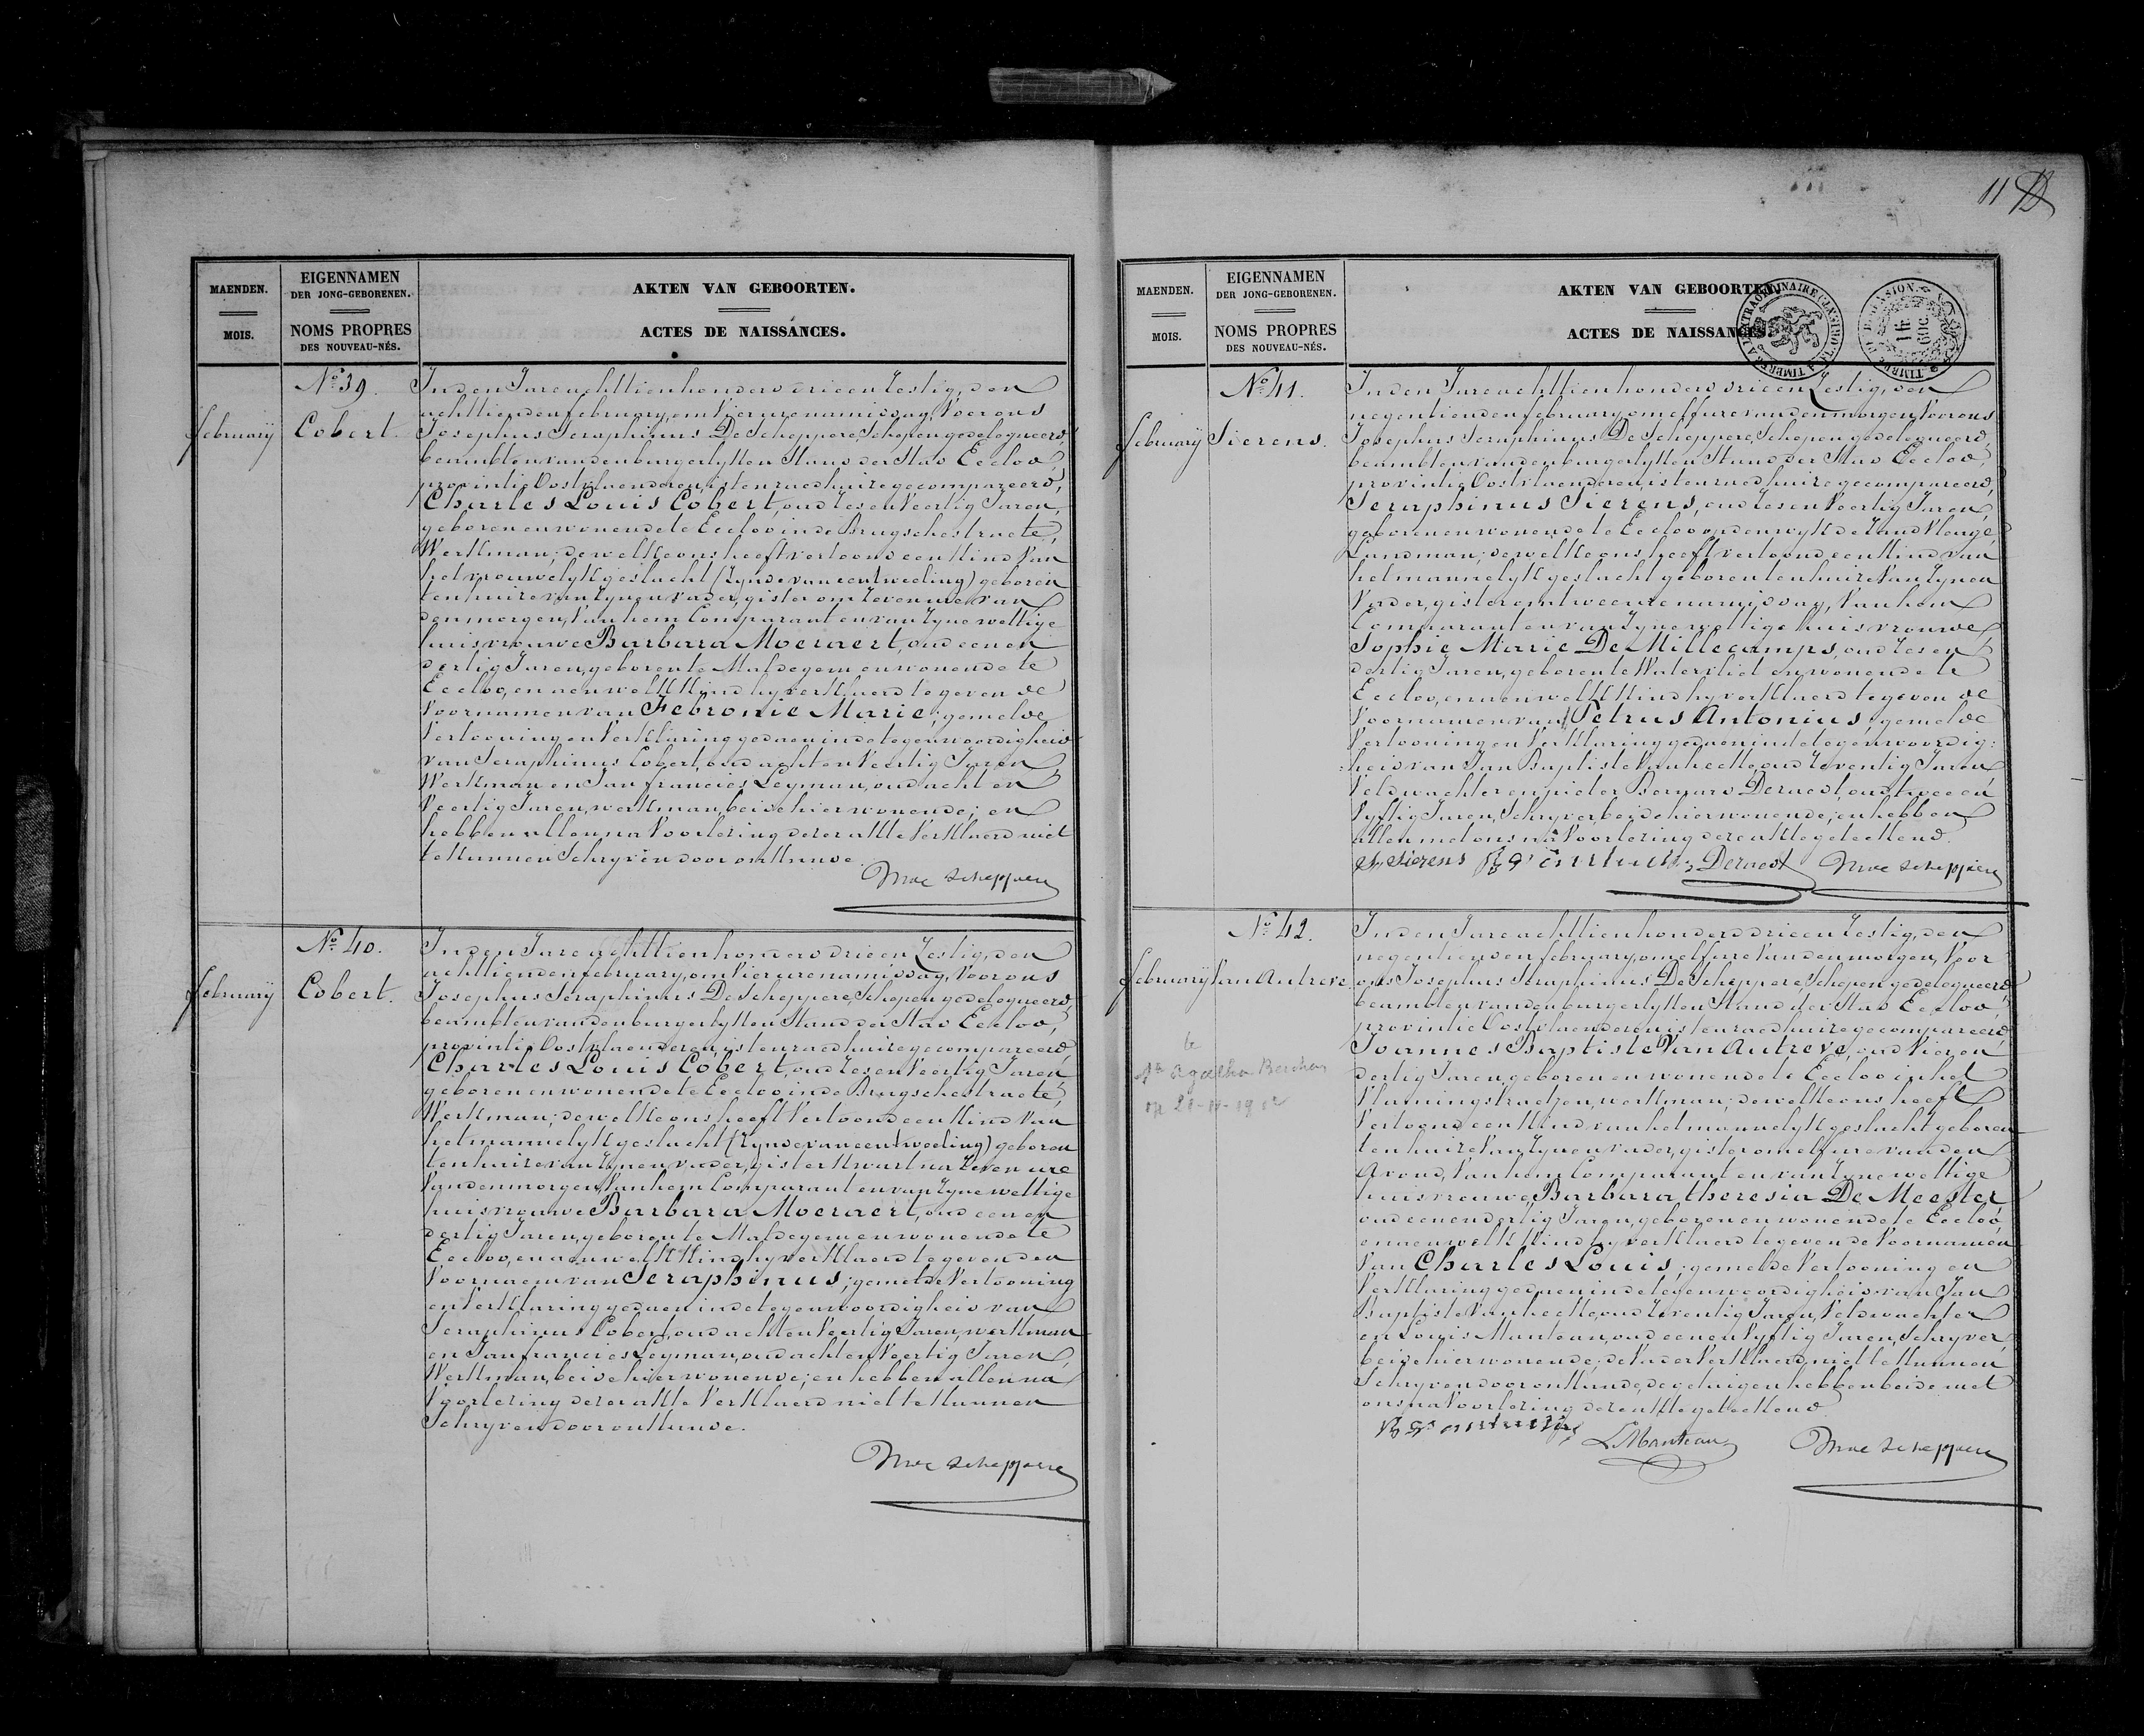 11
MAENDEN.
MOIS.
EIGENNAMEN
DER JONG-GEBORENEN.
NOMS PROPRES
DES NOUVEAU-NÉS.
AKTEN VAN GEBOORTEN.
ACTES DE NAISSANCES.
No. 39.
february
Cobert.
In den Jare achttien honderd drie en Zestig, den
achttienden february, om Vier ure namiddag, Voor ons
Josephus Seraphinus De Scheppere, Schepen gedelegueerd,
beambten van den burgerlyken Stand der Stad Eecloo,
provintie Oostvlaenderen, is ten raedhuize gecompareerd,
Charles Louis Cobert, oud zes en Veertig Jaren,
geboren en wonende te Eecloo in de Brugschestraete,
Werkman; de welke ons heeft vertoond een Kind Van
het vrouwelyk geslacht (Zynde van een tweeling) geboren
ten huize van Zynen vader, gister om Zeven ure van
den morgen, Van hem Comparant en van Zyne wettige
huisvrouwe Barbara Moeraert, oud een en
dertig Jaren, geboren te Maldegem en wonende te
Eecloo, en aen welk Kind hy verklaerd te geven de
Voornamen van Febronie Marie; gemelde
Vertooning en Verklaring gedaen in de tegenwoordigheid
van Seraphinus Cobert, oud acht en Veertig Jaren
Werkman en Jan francies Leyman, oud acht en
Veertig Jaren, werkman, beide hier wonende; en
hebben allen na Voorlezing dezer akte Verklaerd niet
te Kunnen Schryven door onkunde.
No. 40.
february
Cobert.
In den Jare achttien honderd drie en Zestig, den
achttienden february, om Vier ure namiddag, Voor ons
Josephus Seraphinus De Scheppere, Schepen gedelegueerd,
beambten van den burgerlyken Stand der Stad Eecloo,
provintie Oostvlaenderen, is ten raedhuize gecompareerd,
Charles Louis Cobert, oud zes en Veertig Jaren,
geboren en wonende te Eecloo in de Brugschestraete,
Werkman; de welke ons heeft Vertoond een Kind Van
het mannelyk geslacht (Zynde van een tweeling) geboren
ten huize van Zynen vader, gister Kwart na Zeven ure
Van den morgen, Van hem Comparant en van Zyne wettige
huisvrouwe Barbara Moeraert, oud een en
dertig Jaren, geboren te Maldegem en wonende te
Eecloo, en aen welk Kind hy verklaerd te geven den
Voornaem van Seraphinus; gemelde Vertooning
en Verklaring gedaen in de tegenwoordigheid van
Seraphinus Cobert, oud acht en Veertig Jaren, werkman
en Jan francies Leyman, oud acht en Veertig Jaren,
Werkman, beide hier wonende; en hebben allen na
Voorlezing dezer akte Verklaerd niet te Kunnen
Schryven door onkunde.
MAENDEN.
MOIS.
EIGENNAMEN
DER JONG-GEBORENEN.
NOMS PROPRES
DES NOUVEAU-NÉS.
AKTEN VAN GEBOORTEN.
ACTES DE NAISSANCES.
No. 41.
february
Sierens.
In den Jare achttien honderd drie en Zestig, den
negentienden february, om elf ure van den morgen, Voor ons
Josephus Seraphinus De Scheppere, Schepen gedelegueerd,
beambten van den burgerlyken Stand der Stad Eecloo,
provintie Oostvlaenderen, is ten raedhuize gecompareerd,
Seraphinus Sierens, oud zes en Veertig Jaren,
geboren en wonende te Eecloo
Landman; de welke ons heeft vertoond een Kind van
het mannelyk geslacht geboren ten huize Van Zynen
Vader, gister om twee ure namiddag, Van hem
Comparant en van Zyne wettige huisvrouwe
Sophie Marie De Millecamps, oud zes en
dertig Jaren, geboren te Watervliet en wonende te
Eecloo, en aen welk Kind hy verklaerd te geven de
Voornamen van Petrus Antonius; gemelde
Vertooning en Verklaring gedaen in de tegenwoordig=
=heid van Jan Baptiste Vanhecke, oud Zeventig Jaren
Veldwachter en pieter Bernard Dernest, oud twee en
Vyftig Jaren, Schryver, beide hier wonende; en hebben
allen met ons na Voorlezing dezer akte geteekend.
Sierens
No. 42.
february
Van Autreve.
In den Jare achttien honderd drie en Zestig, den
negentienden february, om elf ure Van den morgen, Voor
ons Josephus Seraphinus De Scheppere, Schepen gedelegueerd,
beambten van den burgerlyken Stand der Stad Eecloo,
provintie Oostvlaenderen, is ten raedhuize gecompareerd,
Joannes Baptiste Van Autreve, oud Vier en
dertig Jaren, geboren en wonende te Eecloo in het
Vlamingstraetjen, werkman; de welke ons heeft
Vertoond een Kind van het mannelyk geslacht geboren
ten huize Van Zynen vader, gister om elf ure van den
Avond, Van hem Comparant en van Zyne wettige
huisvrouwe Barbara theresia De Meester,
oud een en dertig Jaren, geboren en wonende te Eecloo,
en aen welk Kind hy verklaerd te geven de Voornamen
Van Charles Louis; gemelde Vertooning en
Verklaring gedaen in de tegenwoordigheid van Jan
Baptiste Vanhecke, oud Zeventig Jaren, Veldwachter
en Louis Manteau, oud een en Vyftig Jaren, Schryver,
beide hier wonende; de Vader Verklaerd niet te Kunnen
Schryven door onkunde, de getuigen hebben beide met
ons na Voorlezing dezer akte geteekend
L Manteau